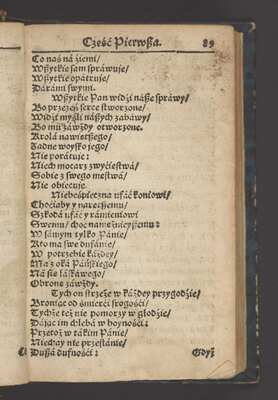 Cżeść Pierwsża. 89
Co nas ná źiemi/
Wszytkie sam spráwuje/
Wszytkie opátruje/
Dárámi swymi.
Wszytkie Pan widźi násze spráwy/
Bo przezeń serce stworzone/
Widźi myśli nászych zabáwy/
Bo mu záwżdy otworzone.
Krolá nawiętszego/
Zadne woysko jego/
Nie porátuje:
Niech mocarz zwyćięstwá/
Sobie z swego męstwá/
Nie obiecuje.
Niebespieczna ufáć koniowi/
Choćiaby y náretszemu/
Szkodá ufáć y rámieniowi
Swemu/ choc namężnieyszemu:
W sámym tylko Pánie/
Kto ma swe dufánie/
W potrzebie káżdey/
Ma z oká Páńskiego/
Ná się łáskáwego/
Obronę záwżdy.
Tych on strzeże w káżdey przygodźie/
Broniąc od śmierći srogośći/
Tychże też nie pomorzy w głodźie/
Dájąc im chlebá w hoynośći:
Przetoż w tákim Pánie/
Niechay nie przestánie/
Duszá dufnośći:
Gdyż